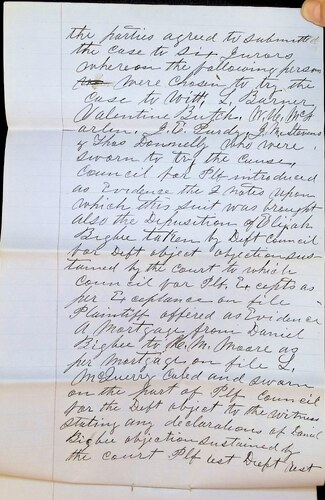 the parties agreed to submitted
the case to Six Jurors
whereon the following person
were Chosen to try the
Case to Witt, L. Barner,
Valentine Butch, W. M. McF
arlen. J. E. Purdy, J. M. Stevens
& Thos Donnelly who were
sworn to try the cause,
Council for Plf introduced
as Evidence the 2 notes upon
which this suit was brought
also the Deposition of Elijah
Bigbee taken by Deft Council
for Deft object objection sus
tained by the court to which
Council for Plf Excepts as
per Exceptance on file
Plaintiff offered as Evidence
A Mortgage from Daniel
Bigbee to M. M. Moore as
per Mortgage on file L.
McQuerry Caled and sworn
on the part of Plf Council
for the Deft object to the witness
stating any declarations of Daniel
Bigbee objection sustained by
the court Plf rest Deft rest